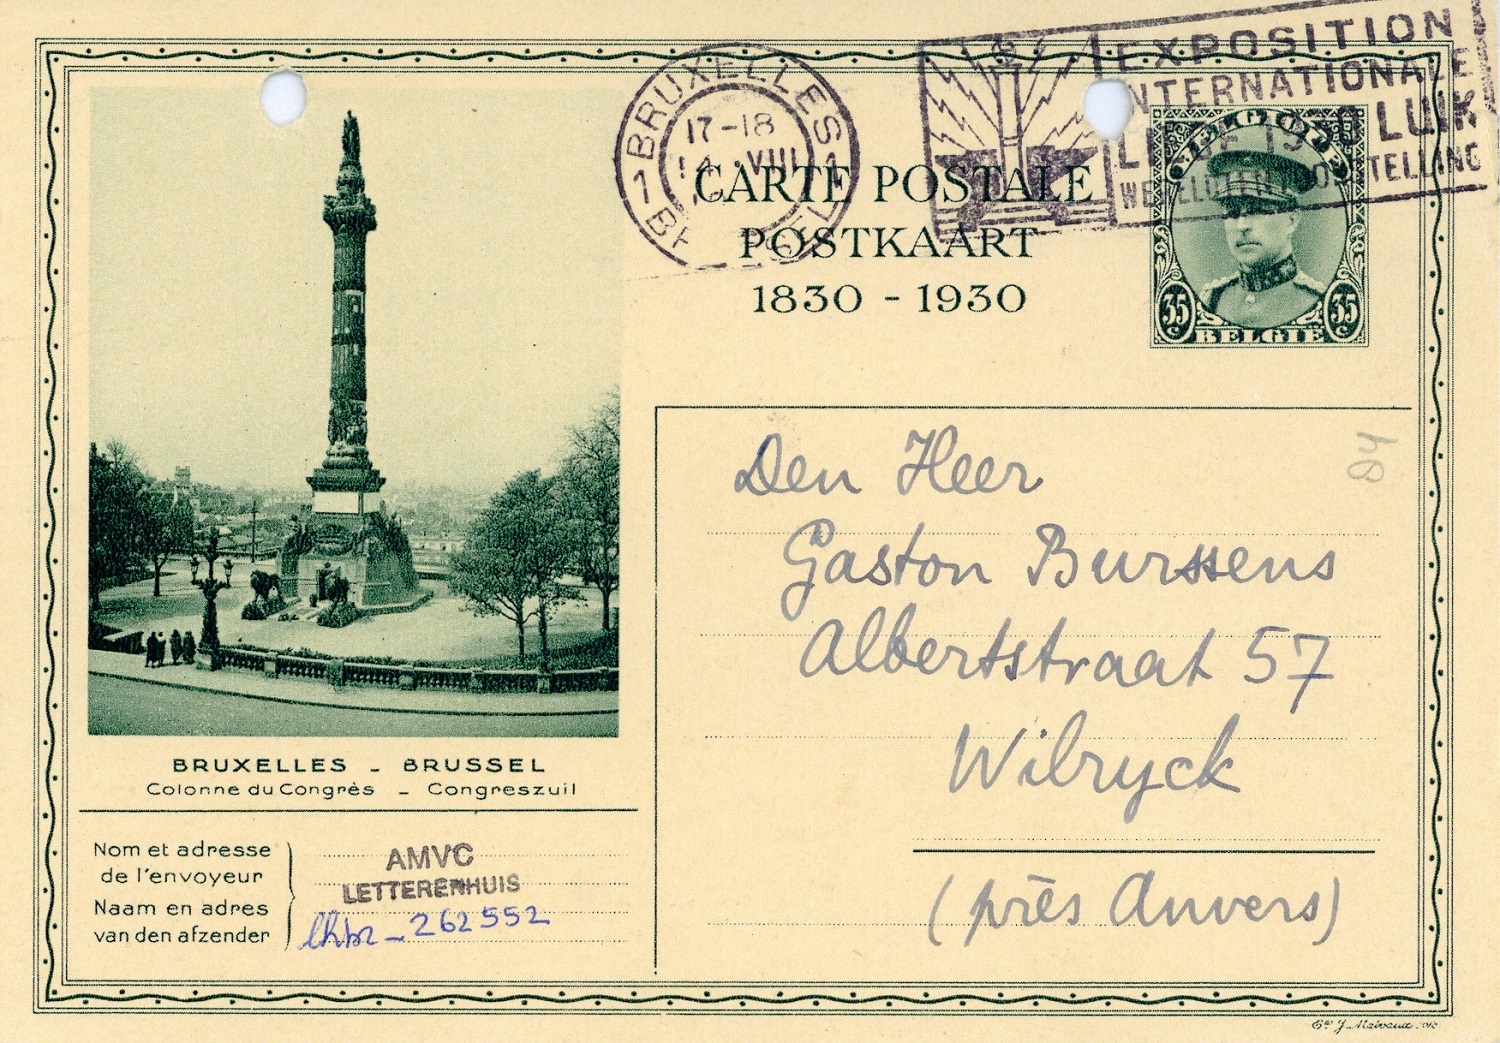 BRUXELLES
17-18
VIII
1 1
EXPOSITION
INTERNATIONALE
LUIK
CARTE POSTALE
POSTKAART
1830 - 1930
BELGIQUE
35 c 35 c
BELGIË
Den Heer
Gaston Burssens
Albertstraat 57
Wilryck
(près Anvers)
84
BRUXELLES - BRUSSEL
Colonne du Congrès - Congreszuil
Nom et adresse
de l'envoyeur
Naam en adres
van den afzender
AMVC
LETTERENHUIS
lhbr - 262552